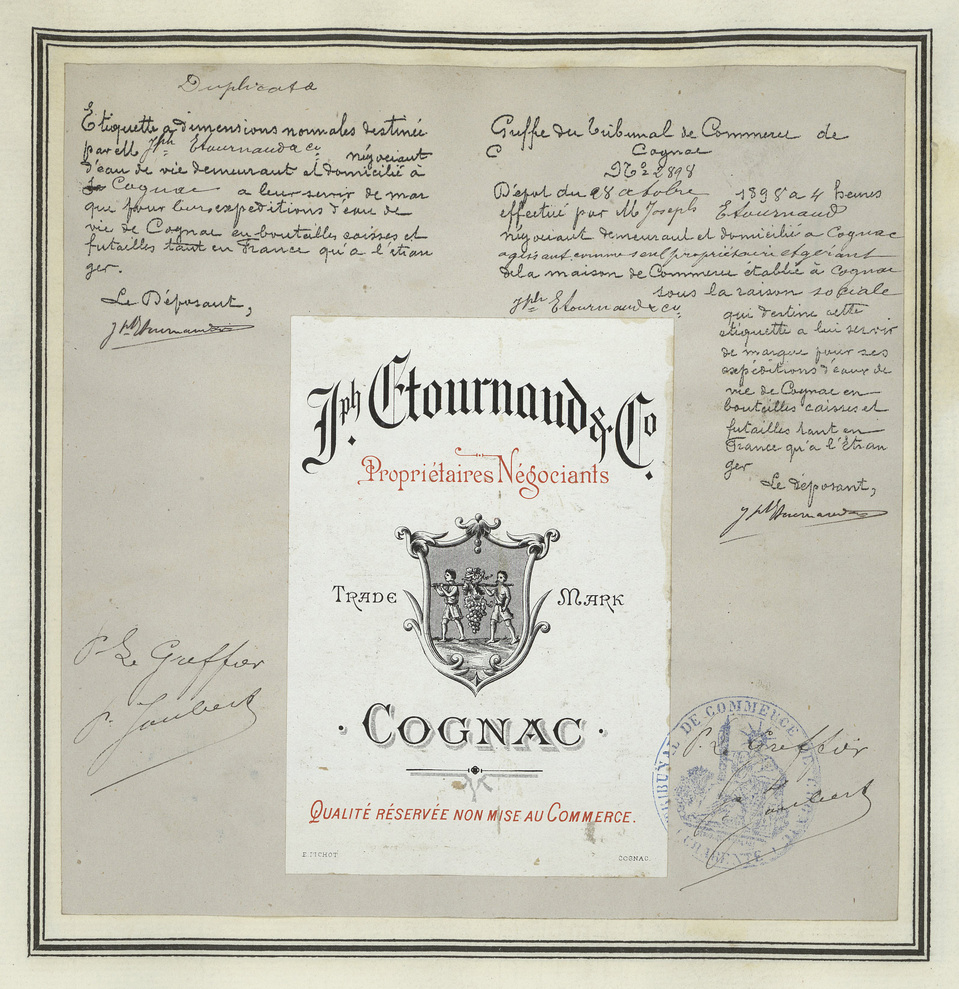 Duplicata
Etiquette a dimensions normales destinée
par M Jph Etournaud & Co négociant
d'eau de vie demeurant et domicilié à
Cognac a leur servir de mar
que pour leurs expéditions d'eau de
vie de Cognac en bouteilles caisses et
futailles tant en France qu'a l'étran
ger.
Le Déposant,
Jph Etournaud
Greffe du Tribunal de Commerce de
C Cognac
No 2898
Dépot du 28 octobre 1898 a 4 heures
effectué par M Joseph Etournaud
négociant demeurant et domicilié a Cognac
agissant comme seul propriétaire et gérant
de la maison de Commerce établie à Cognac
sous la raison sociale
Jph Etournaud & Co,
qui destine cette
étiquette a lui servir
de marque pour ses
expéditions d'eaux de
vie de Cognac en
bouteilles caisses et
futailles tant en
France qu'a l'étran
ger
Le déposant,
Jph Etournaud
Jph. Etournaud & Co.
Propriétaires Négociants
TRADE MARK
· COGNAC ·
QUALITÉ RÉSERVÉE NON MISE AU COMMERCE.
COGNAC.
P. Le Greffier
P. Joubert
TRIBUNAL DE COMMERCE DE COGNAC
CHARENTE
P. Le Greffier
P. Joubert